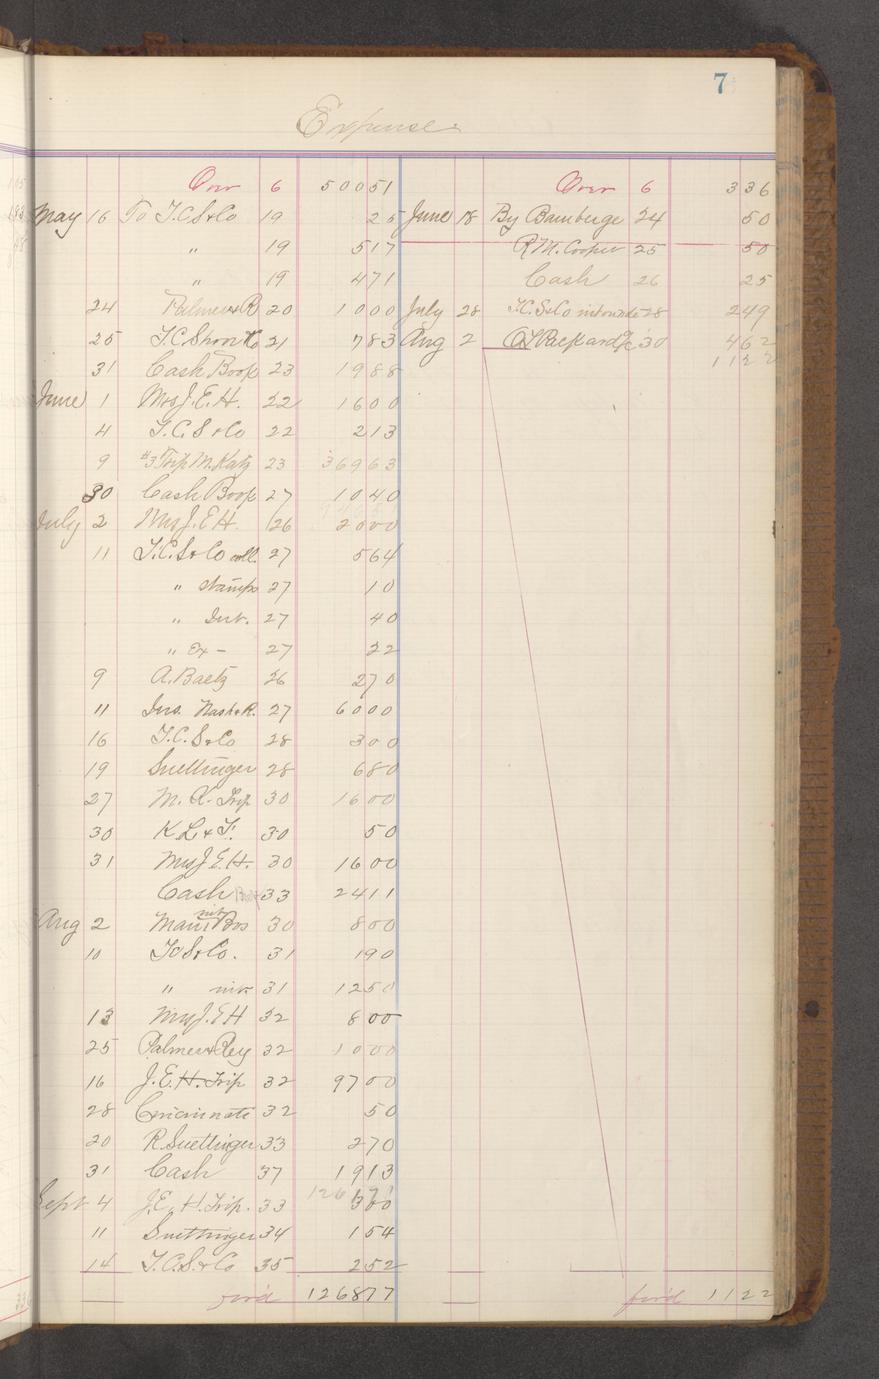 7
Expense
Over 6 50051
May 16 To T.C.S&Co 19 25
" 19 517
" 19 471
24 Palmer&R 20 1000
25 21 783
31 Cash Book 23 1988
June 1 Mrs J.E.H. 22 1600
4 T.C.S&Co 22 213
9 #3 Trip M. Katz 23 36963
30 Cash Book 27 1040
July 2 Mrs J.E.H. 26 2000
11 T.C.S&Co coll. 27 564
" stamps 27 10
" Int. 27 40
" Ex - 27 22
9 A. Baetz 26 270
11 Ins. Nash&R. 27 6000
16 T.C.S&Co 28 300
19 Suettinger 28 680
27 M.K. Trip 30 1600
30 K.L.&T. 30 50
31 Mrs J.E.H. 30 1600
Cash Book 33 2411
Aug 2 Bros 30 800
10 T.C.S&Co. 31 190
" int 31 1250
13 Mrs J.E.H 32 800
25 Palmer&Rey 32 1000
16 J.E.H. Trip 32 9700
28 Cincinnati 32 50
20 R. Suettinger 33 270
31 Cash 37 1913
Sept 4 J.E.H. Trip. 33 300
11 Suettinger 34 154
14 T.C.S.&Co 35 252
for'd 126877
Over 6 336
June 18 By Bamberge 24 50
R.M. Cooper 25 50
Cash 26 25
July 28 T.C.S&Co 28 249
Aug 2 Packard 30 462
1122
for'd 1122